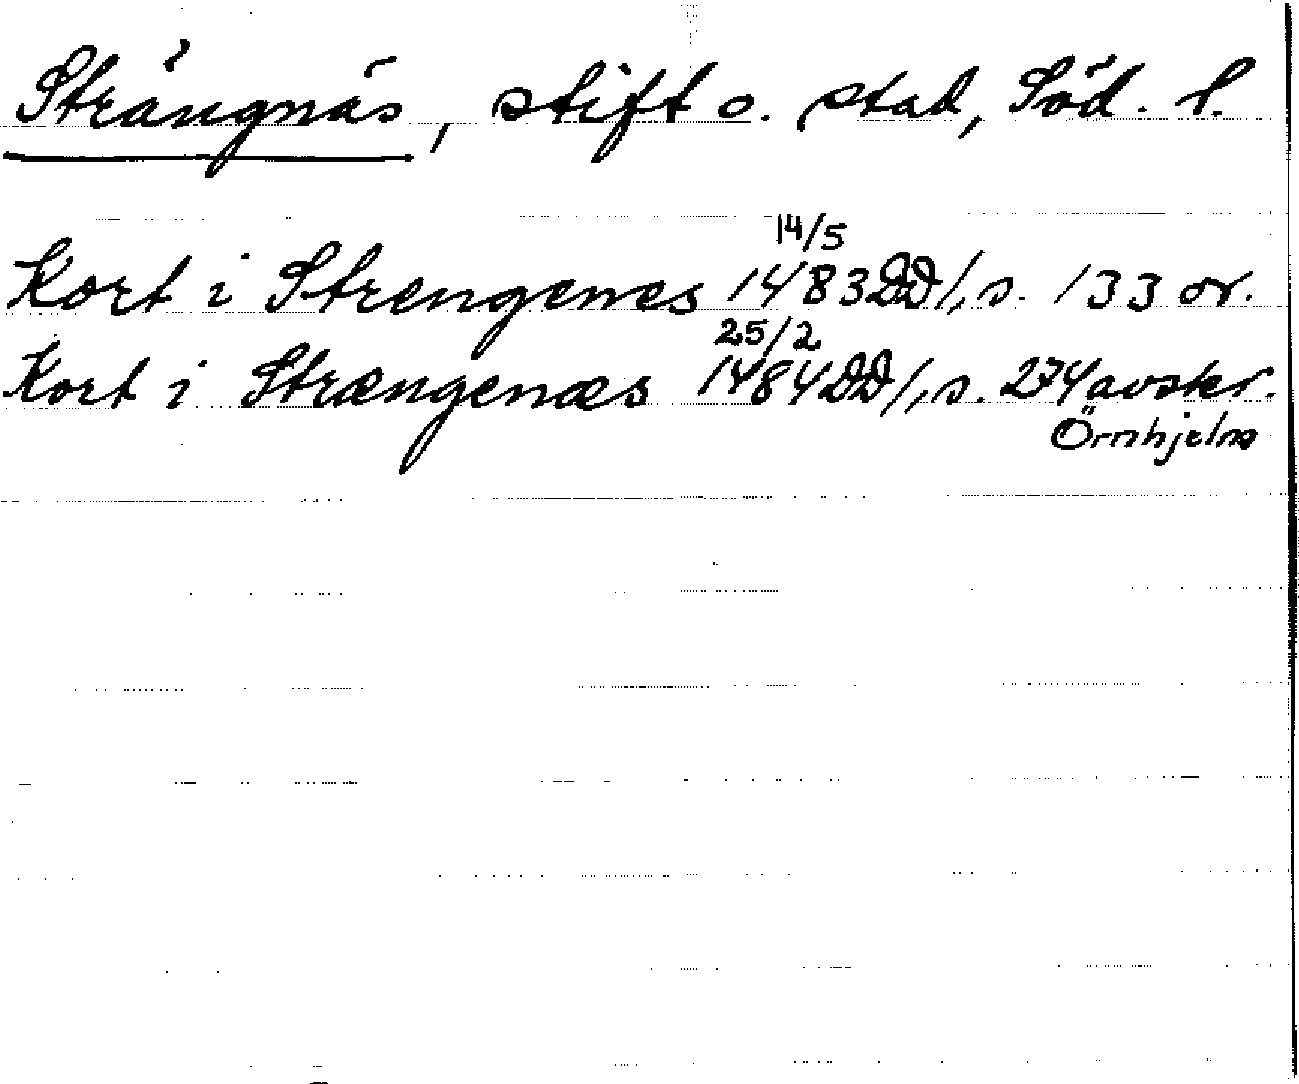 Strängnäs, stift o. stad, Söd. l.
14/5
Kort i Strengenes 1483 DD 1, s. 133 or.
25/2
Kort i Strængenæs 1484 DD 1, s. 274 avskr.
Örnhjelm